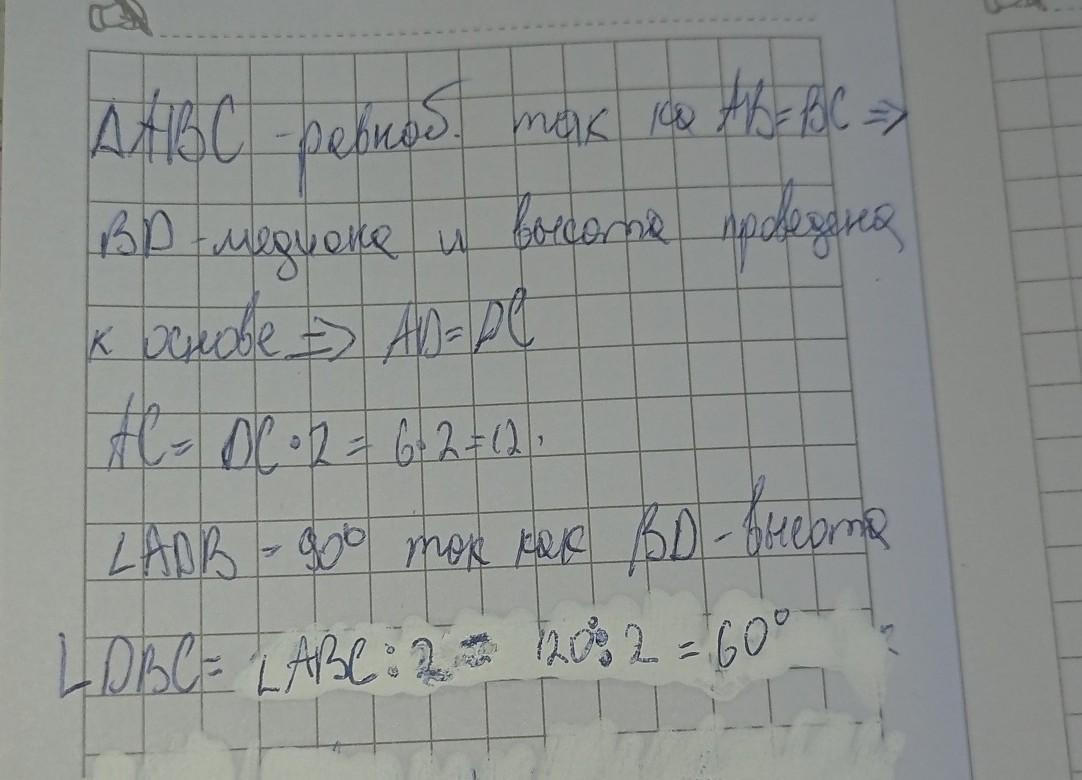 ΔABC - равноб. так ка AB=BC =>
BD - медиана и высота проведена
к основе => AD=DC
AC= DC·2= 6·2=12.
∠ADB = 90° так как BD - высота
∠DBC= ∠ABC:2 = 120°:2 = 60°